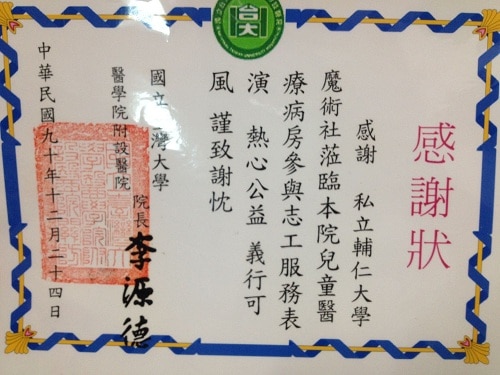 台大
感謝狀
感謝 私立輔仁大學
魔術社蒞臨本院兒童醫
療病房參與志工服務表
演 熱心公益 義行可
風 謹致謝忱
國立 灣大學
醫學院附設醫院 院長 李源德
中華民國九十年十二月二十四日